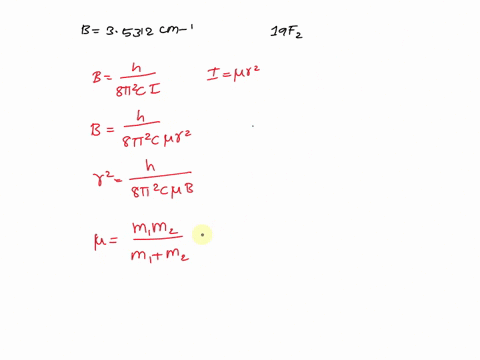 B = 3.5312 cm⁻¹ 19F₂
B = h / 8π²CI I = μr²
B = h / 8π²C μr²
r² = h / 8π²C μB
μ = m₁m₂ / m₁+m₂